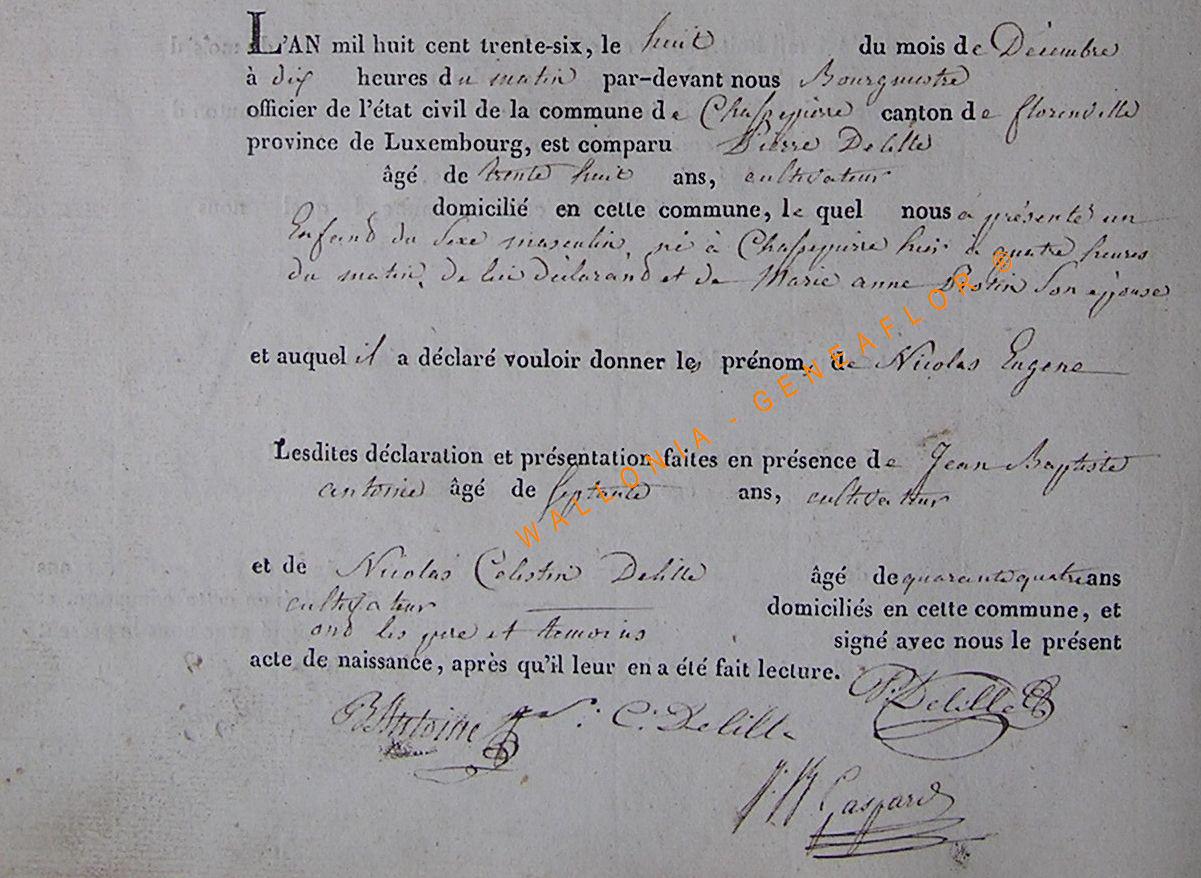 L'AN mil huit cent trente-six, le huit du mois de Décembre
à dix heures du matin par-devant nous Bourgmestre
officier de l'état civil de la commune de Chassepierre canton de florenville
province de Luxembourg, est comparu Pierre Delille
âgé de trente huit ans, cultivateur
domicilié en cette commune, le quel nous a présenté un
Enfand du Sexe masculin, né à Chassepierre hier à quatre heures
du matin, de lui déclarand et de Marie anne Son épouse
et auquel il a déclaré vouloir donner les prénoms de Nicolas Eugene
Lesdites déclaration et présentation faites en présence de Jean Baptiste
antoine âgé de Septante ans, cultivateur
et de Nicolas Celestin Delille âgé de quarante quatre ans
cultivateur domiciliés en cette commune, et
ond les pere et temoins signé avec nous le présent
acte de naissance, après qu'il leur en a été fait lecture.
P. Delille
BAntoine N. C. Delille
Gaspard
WALLONIA - GENEAFLOR ®